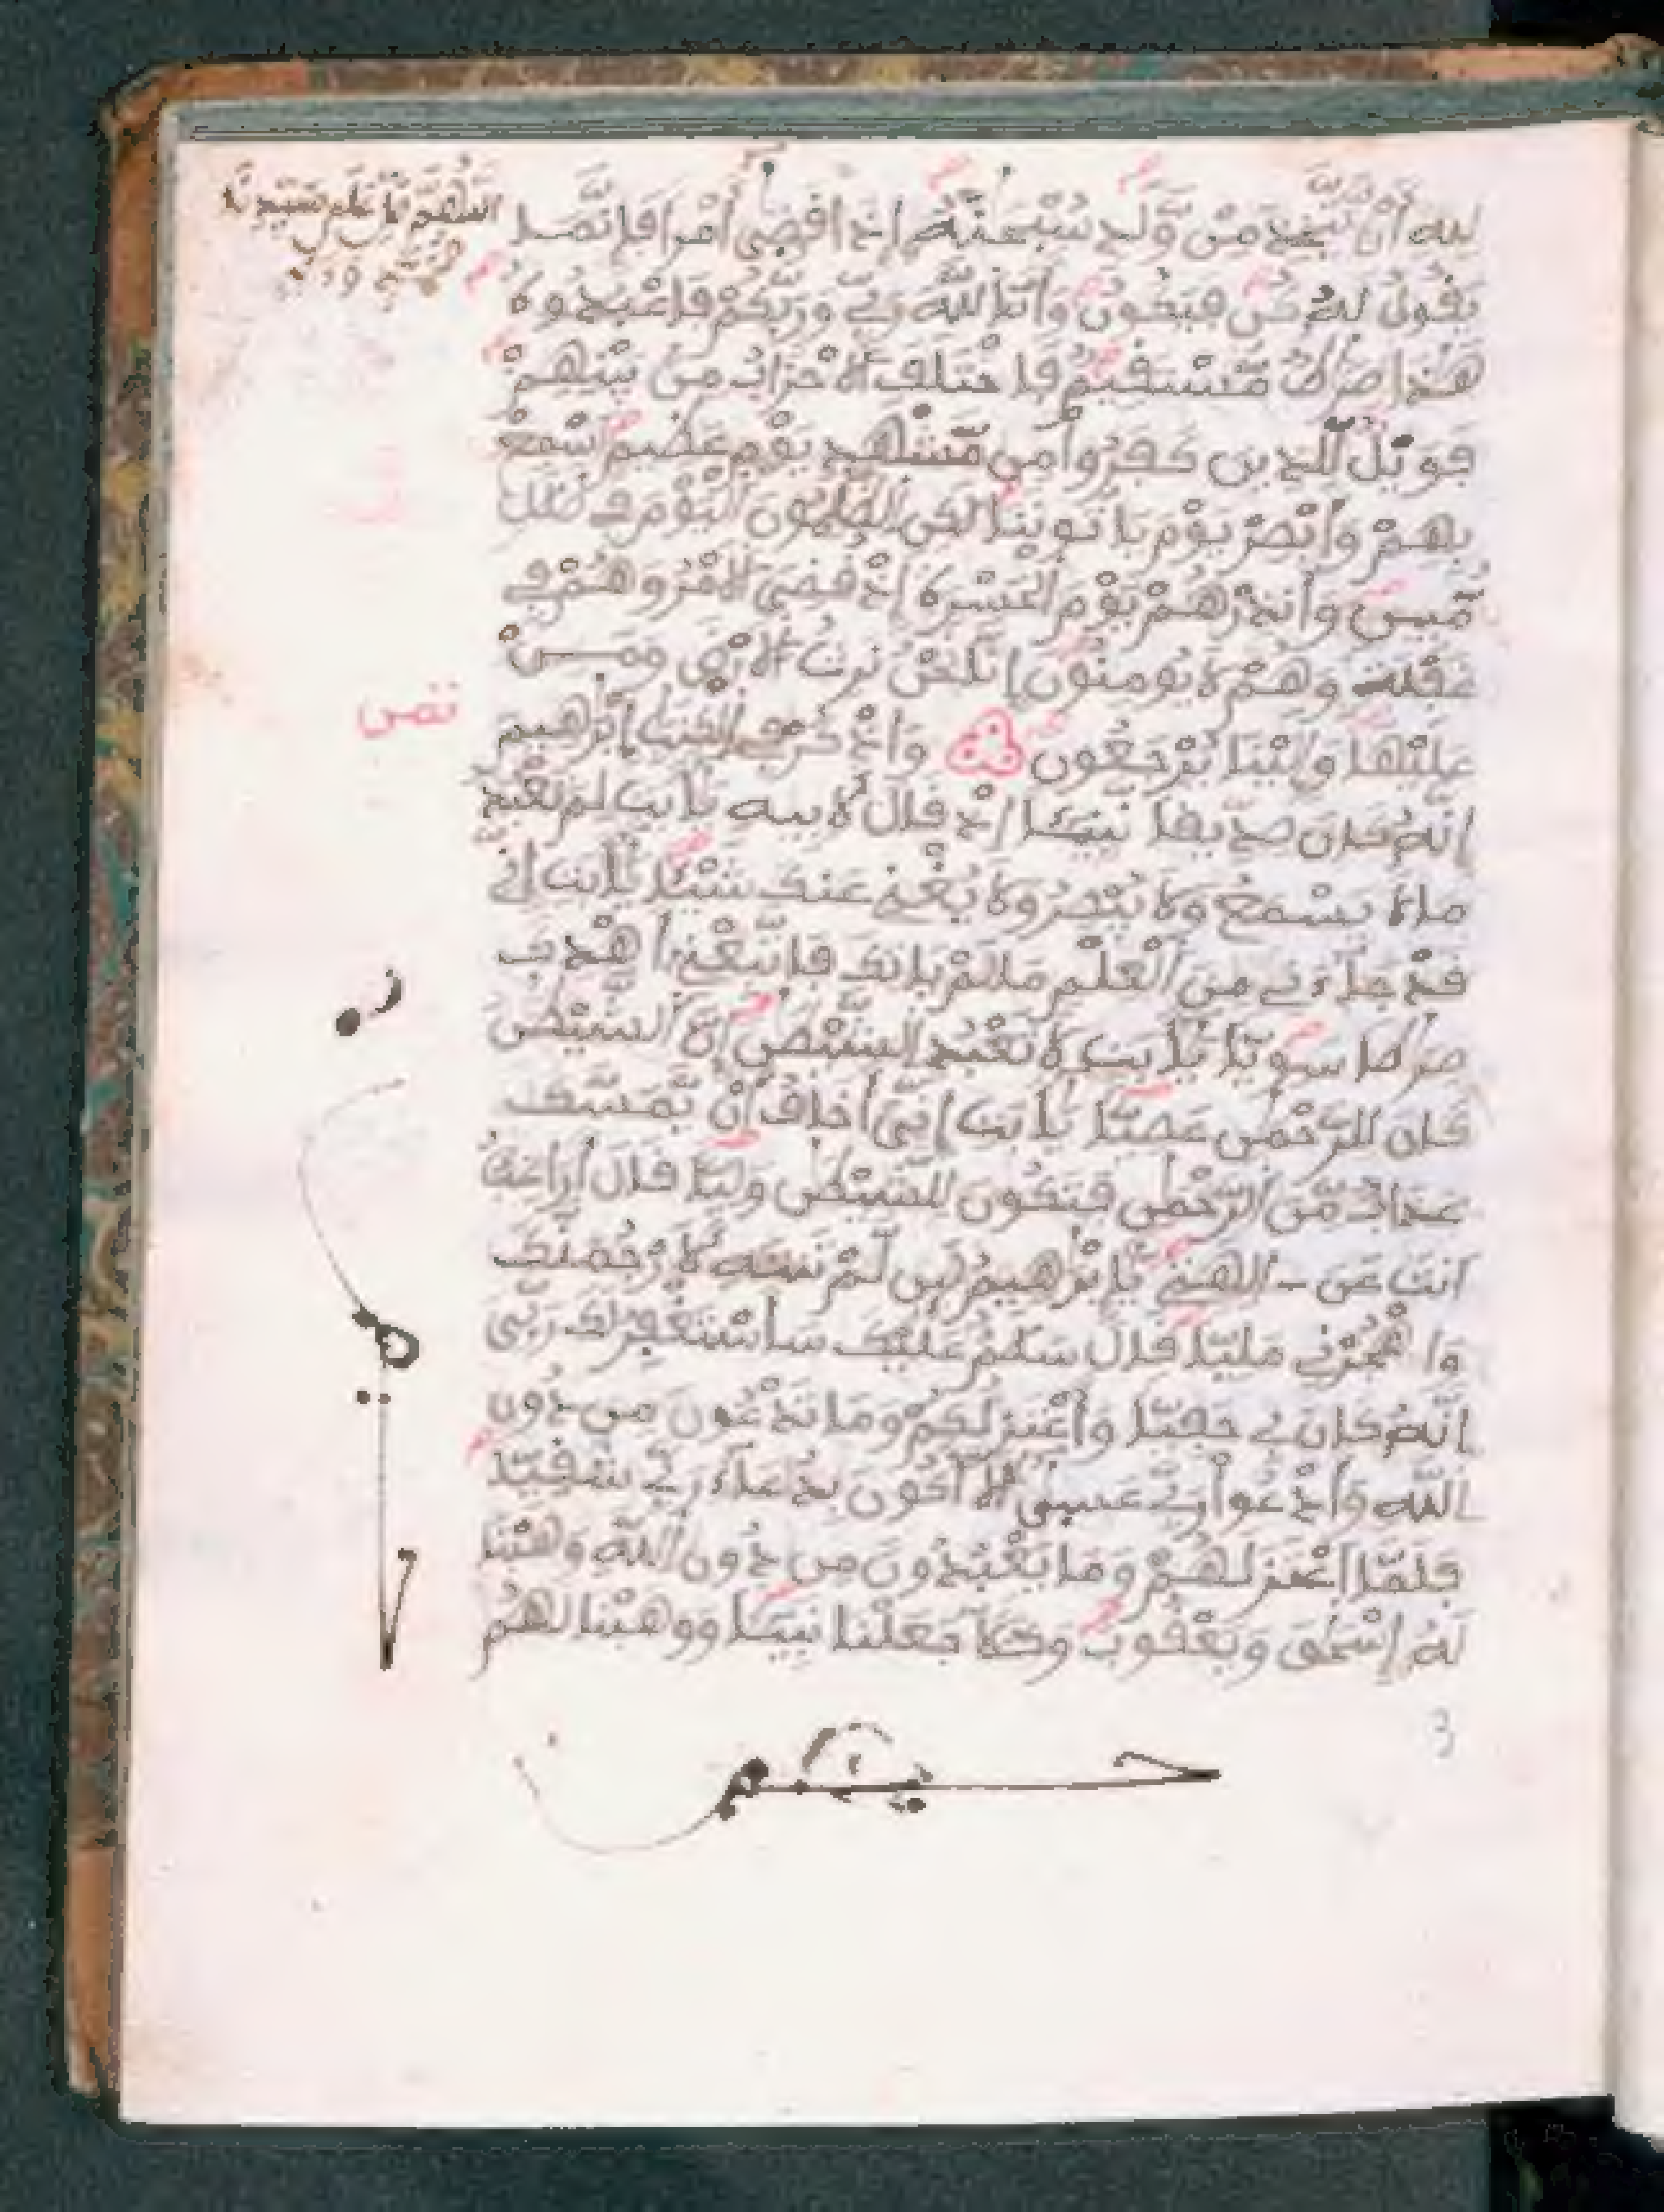 لله أن يتخذ من ولد سبحنه إذا قضى أمرا فإنما
يقول له كن فيكون وأن الله ربي وربكم فاعبدوه
هذا صرط مستقيم فاختلف الاحزاب من بينهم
فويل للذين كفروا من مشهد يوم عظيم اسمع
بهم وأبصر يوم ياتوننا لكن الظلمون اليوم في ضلل
مبين وأنذرهم يوم الحسرة إذ قضي الامر وهم في
غفلة وهم لا يومنون إنا نحن نرث الارض ومن
عليها وإلينا يرجعون واذكر في الكتب إبرهيم
إنه كان صديقا نبيئا إذ قال لابيه يأبت لم تعبد
ما لا يسمع ولا يبصر ولا يغني عنك شيئا يأبت إني
قد جاءني من العلم ما لم ياتك فاتبعني أهدك
صرطا سويا يأبت لا تعبد الشيطن إن الشيطن
كان للرحمن عصيا يأبت إني أخاف أن يمسك
عذاب من الرحمن فتكون للشيطن وليا قال أراغب
انت عن الهتي يإبرهيم لين لم تنته لارجمنك
واهجرني مليا قال سلم عليك سأستغفر لك ربي
إنه كان بي حفيا وأعتزلكم وما تدعون من دون
الله وأدعوا ربي عسى ألا أكون بدعاء ربي شقيا
فلما اعتزلهم وما يعبدون من دون الله وهبنا
له إسحق ويعقوب وكلا جعلنا نبيئا ووهبنا لهم
اللهم صل على سيدنا
نصف
3